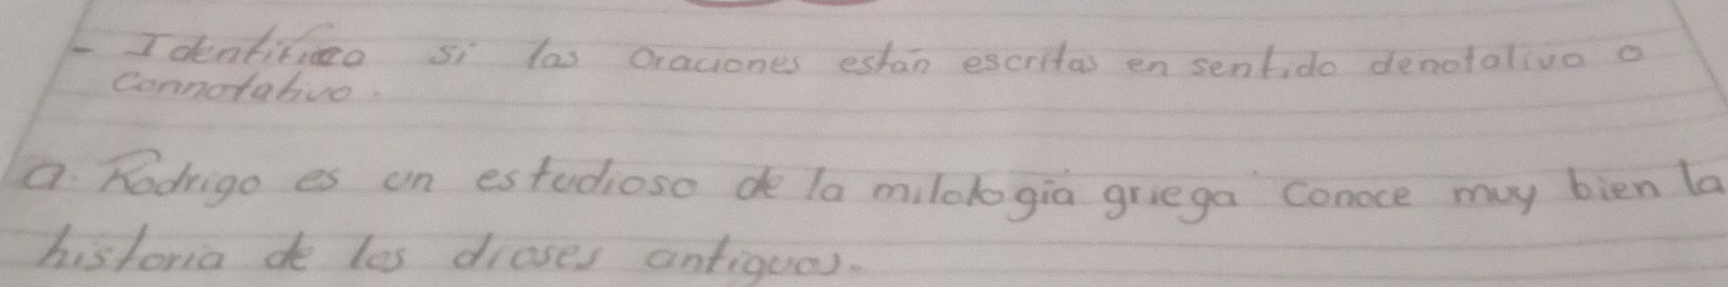 - Identifico si las oraciones están escritas en sentido denotativo o
connotativo.
a. Rodrigo es un estudioso de la mitología griega conoce muy bien la
historia de los dioses antiguos.